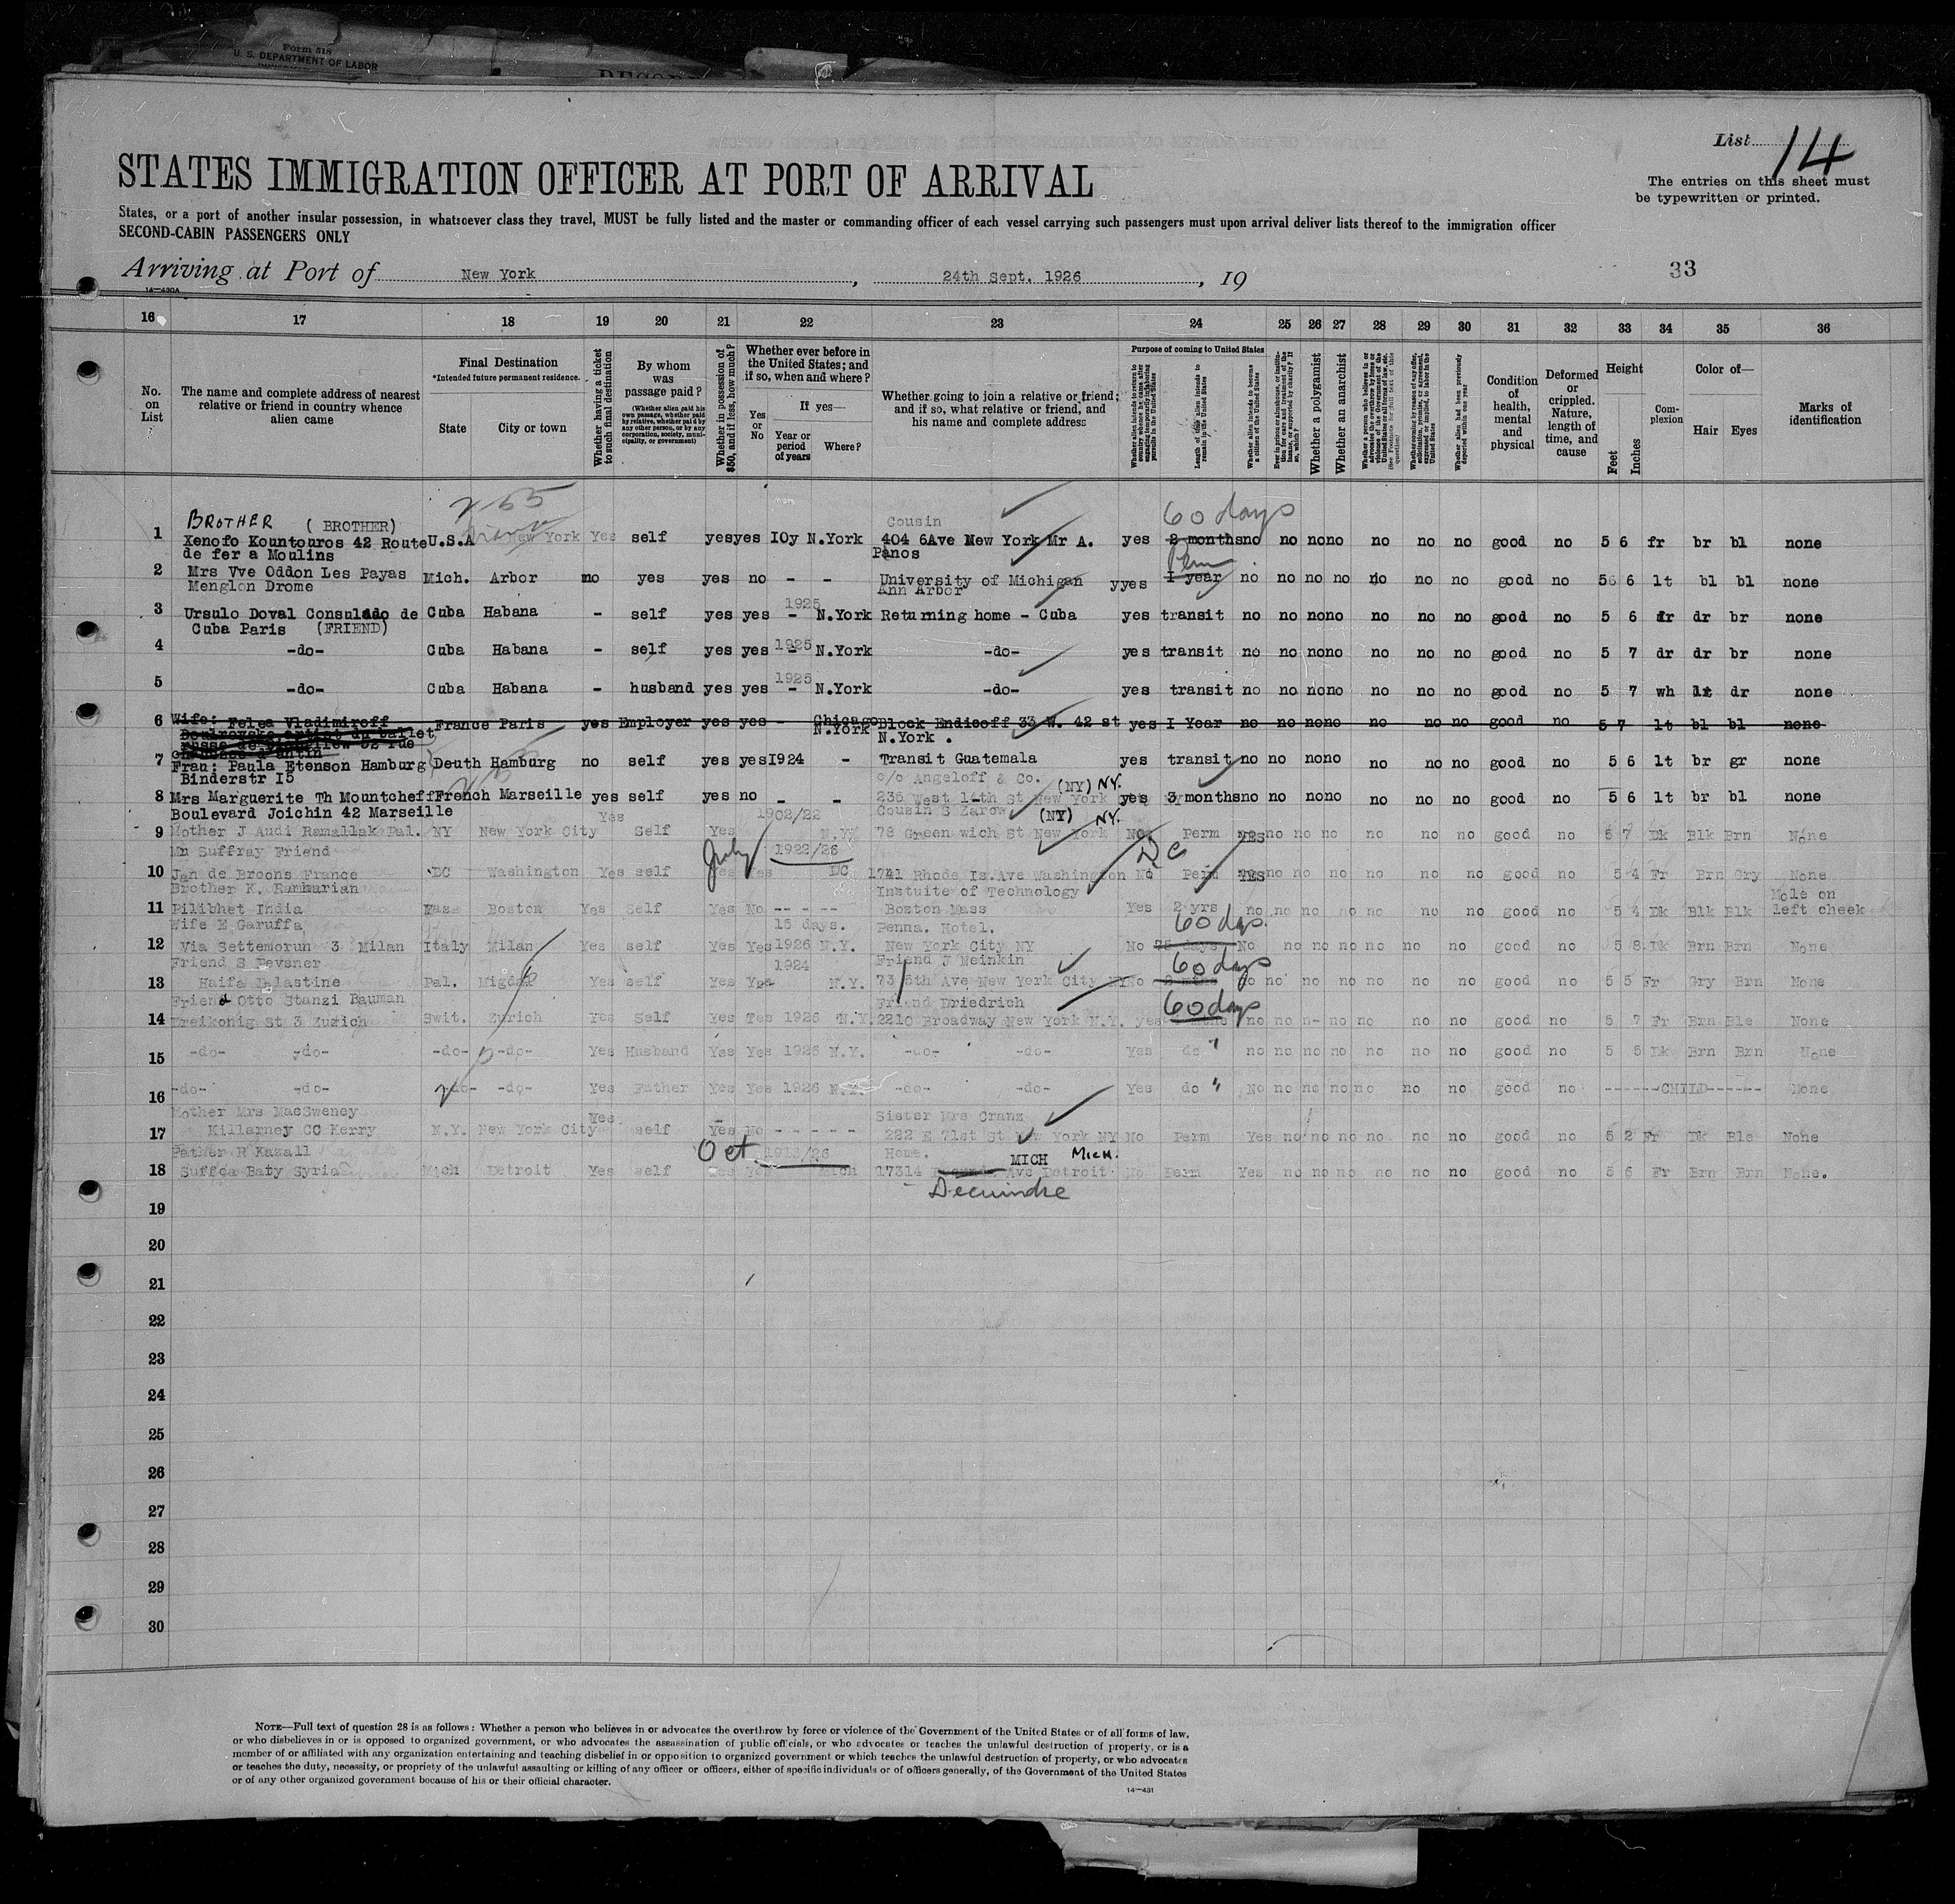 Form 518
U. S. DEPARTMENT OF LABOR
List 14
STATES IMMIGRATION OFFICER AT PORT OF ARRIVAL
The entries on this sheet must
be typewritten or printed.
States, or a port of another insular possession, in whatsoever class they travel, MUST be fully listed and the master or commanding officer of each vessel carrying such passengers must upon arrival deliver lists thereof to the immigration officer
SECOND-CABIN PASSENGERS ONLY
Arriving at Port of New York, 24th Sept. 1926, 19
33
14-430A
16 17 18 19 20 21 22 23 24 25 26 27 28 29 30 31 32 33 34 35 36
No. on List
The name and complete address of nearest relative or friend in country whence alien came
Final Destination
*Intended future permanent residence.
State City or town
Whether having a ticket to such final destination
By whom was passage paid?
(Whether alien paid his own passage, whether paid by relative, whether paid by any other person, or by any corporation, society, municipality, or government)
Whether in possession of $50, and if less, how much?
Whether ever before in the United States; and if so, when and where?
Yes or No
If yes—
Year or period of years
Where?
Whether going to join a relative or friend; and if so, what relative or friend, and his name and complete address
Purpose of coming to United States
Length of time alien intends to remain in the United States
Whether alien intends to become a citizen of the United States
Whether a polygamist
Whether an anarchist
Condition of health, mental and physical
Deformed or crippled. Nature, length of time, and cause
Height
Feet Inches
Complexion
Color of—
Hair Eyes
Marks of identification
BROTHER (BROTHER) Cousin 60 days
1 Xenofo Kountouros 42 Route U.S.A New York Yes self yes yes IOy N.York 404 6Ave New York Mr A. yes 2 months no no no no no no no good no 5 6 fr br bl none
de fer a Moulins Panos
Perm
2 Mrs Vve Oddon Les Payas Mich. Arbor no yes yes no - - University of Michigan yyes I year no no no no no no no good no 5 6 lt bl bl none
Menglon Drome Ann Arbor
1925
3 Ursulo Doval Consulado de Cuba Habana - self yes yes - N.York Returning home - Cuba yes transit no no no no no no no good no 5 6 dr dr br none
Cuba Paris (FRIEND)
1925
4 -do- Cuba Habana - self yes yes - N.York -do- yes transit no no no no no no no good no 5 7 dr dr br none
1925
5 -do- Cuba Habana - husband yes yes - N.York -do- yes transit no no no no no no no good no 5 7 wh dr none
6 Wife: Felea Vladimiroff France Paris yes Employer yes yes - Chicago Block Endicoff 33 W. 42 st yes I Year no no no no no no no good no 5 7 lt bl bl none
artist du ballet N.York N.York .
7 Frau: Paula Etenson Hamburg Deuth Hamburg no self yes yes I924 - Transit Guatemala yes transit no no no no no no no good no 5 6 lt br gr none
Binderstr I5 c/o Angeloff & Co. (NY) NY.
8 Mrs Marguerite Th Mountcheff French Marseille yes self yes no - - 236 West 14th St New York City yes 3 months no no no no no no no good no 5 6 lt br bl none
Boulevard Joichin 42 Marseille Yes 1902/22 Cousin S Zarow (NY) NY.
9 Mother J Audi Ramallak Pal. NY New York City Self Yes N.Y. 78 Green wich St New York No Perm YES no no no no no no good no 5 7 Dk Blk Brn None
Mn Suffray Friend July 1922/26 DC
10 Jan de Broons France DC Washington Yes self Yes Yes DC 1741 Rhode Is.Ave Washington No Perm YES no no no no no no good no 5 4 Fr Brn Gry None
Brother K. Ramkarian Instuite of Technology Mole on
11 Pilibhet India Mass Boston Yes Self Yes No - - - - Boston Mass Yes 2 yrs no no no no no no no good no 5 4 Dk Blk Blk left cheek
Wife E Garuffa 15 days. Penna. Hotel. 60 days.
12 Via Settemorun 3 Milan Italy Milan Yes self Yes Yes 1926 N.Y. New York City NY No days No no no no no no no good no 5 8 Dk Brn Brn None
Friend S Pevsner 1924 Friend J Neinkin 60 days
13 Haifa Palastine Pal. Migdal Yes self Yes Yes N.Y. 73 5th Ave New York City NY No no no no no no no good no 5 5 Fr Gry Brn None
Friend Otto Stanzi Bauman Friend Driedrich 60 days
14 Dreikonig St 3 Zurich Swit. Zurich Yes Self Yes Yes 1926 N.Y. 2210 Broadway New York N.Y. yes no no n- no no no no good no 5 7 Fr Brn Ble None
15 -do- -do- -do- -do- Yes Husband Yes Yes 1926 N.Y. -do- -do- Yes do " no no no no no no no good no 5 5 Dk Brn Brn None
16 -do- -do- -do- -do- Yes Father Yes Yes 1926 N.Y. -do- -do- Yes do " No no no no no no no good no ------CHILD------ None
Mother Mrs MacSweney Yes Sister Mrs Cranz
17 Killarney CC Kerry N.Y. New York City self Yes No - - - - - 222 E 71st St New York NY No Perm Yes no no no no no no good no 5 2 Fr Dk Ble None
Father R Kazall Oct 1913/26 Home. MICH MICH.
18 Suffca Baty Syria Mich Detroit Yes self Yes Mich 17314 Ave Detroit No Perm Yes no no no no no no good no 5 6 Fr Brn Brn None.
Dequindre
19
20
21
22
23
24
25
26
27
28
29
30
NOTE—Full text of question 28 is as follows: Whether a person who believes in or advocates the overthrow by force or violence of the Government of the United States or of all forms of law,
or who disbelieves in or is opposed to organized government, or who advocates the assassination of public officials, or who advocates or teaches the unlawful destruction of property, or is a
member of or affiliated with any organization entertaining and teaching disbelief in or opposition to organized government or which teaches the unlawful destruction of property, or who advocates
or teaches the duty, necessity, or propriety of the unlawful assaulting or killing of any officer or officers, either of specific individuals or of officers generally, of the Government of the United States
or of any other organized government because of his or their official character.
14-431